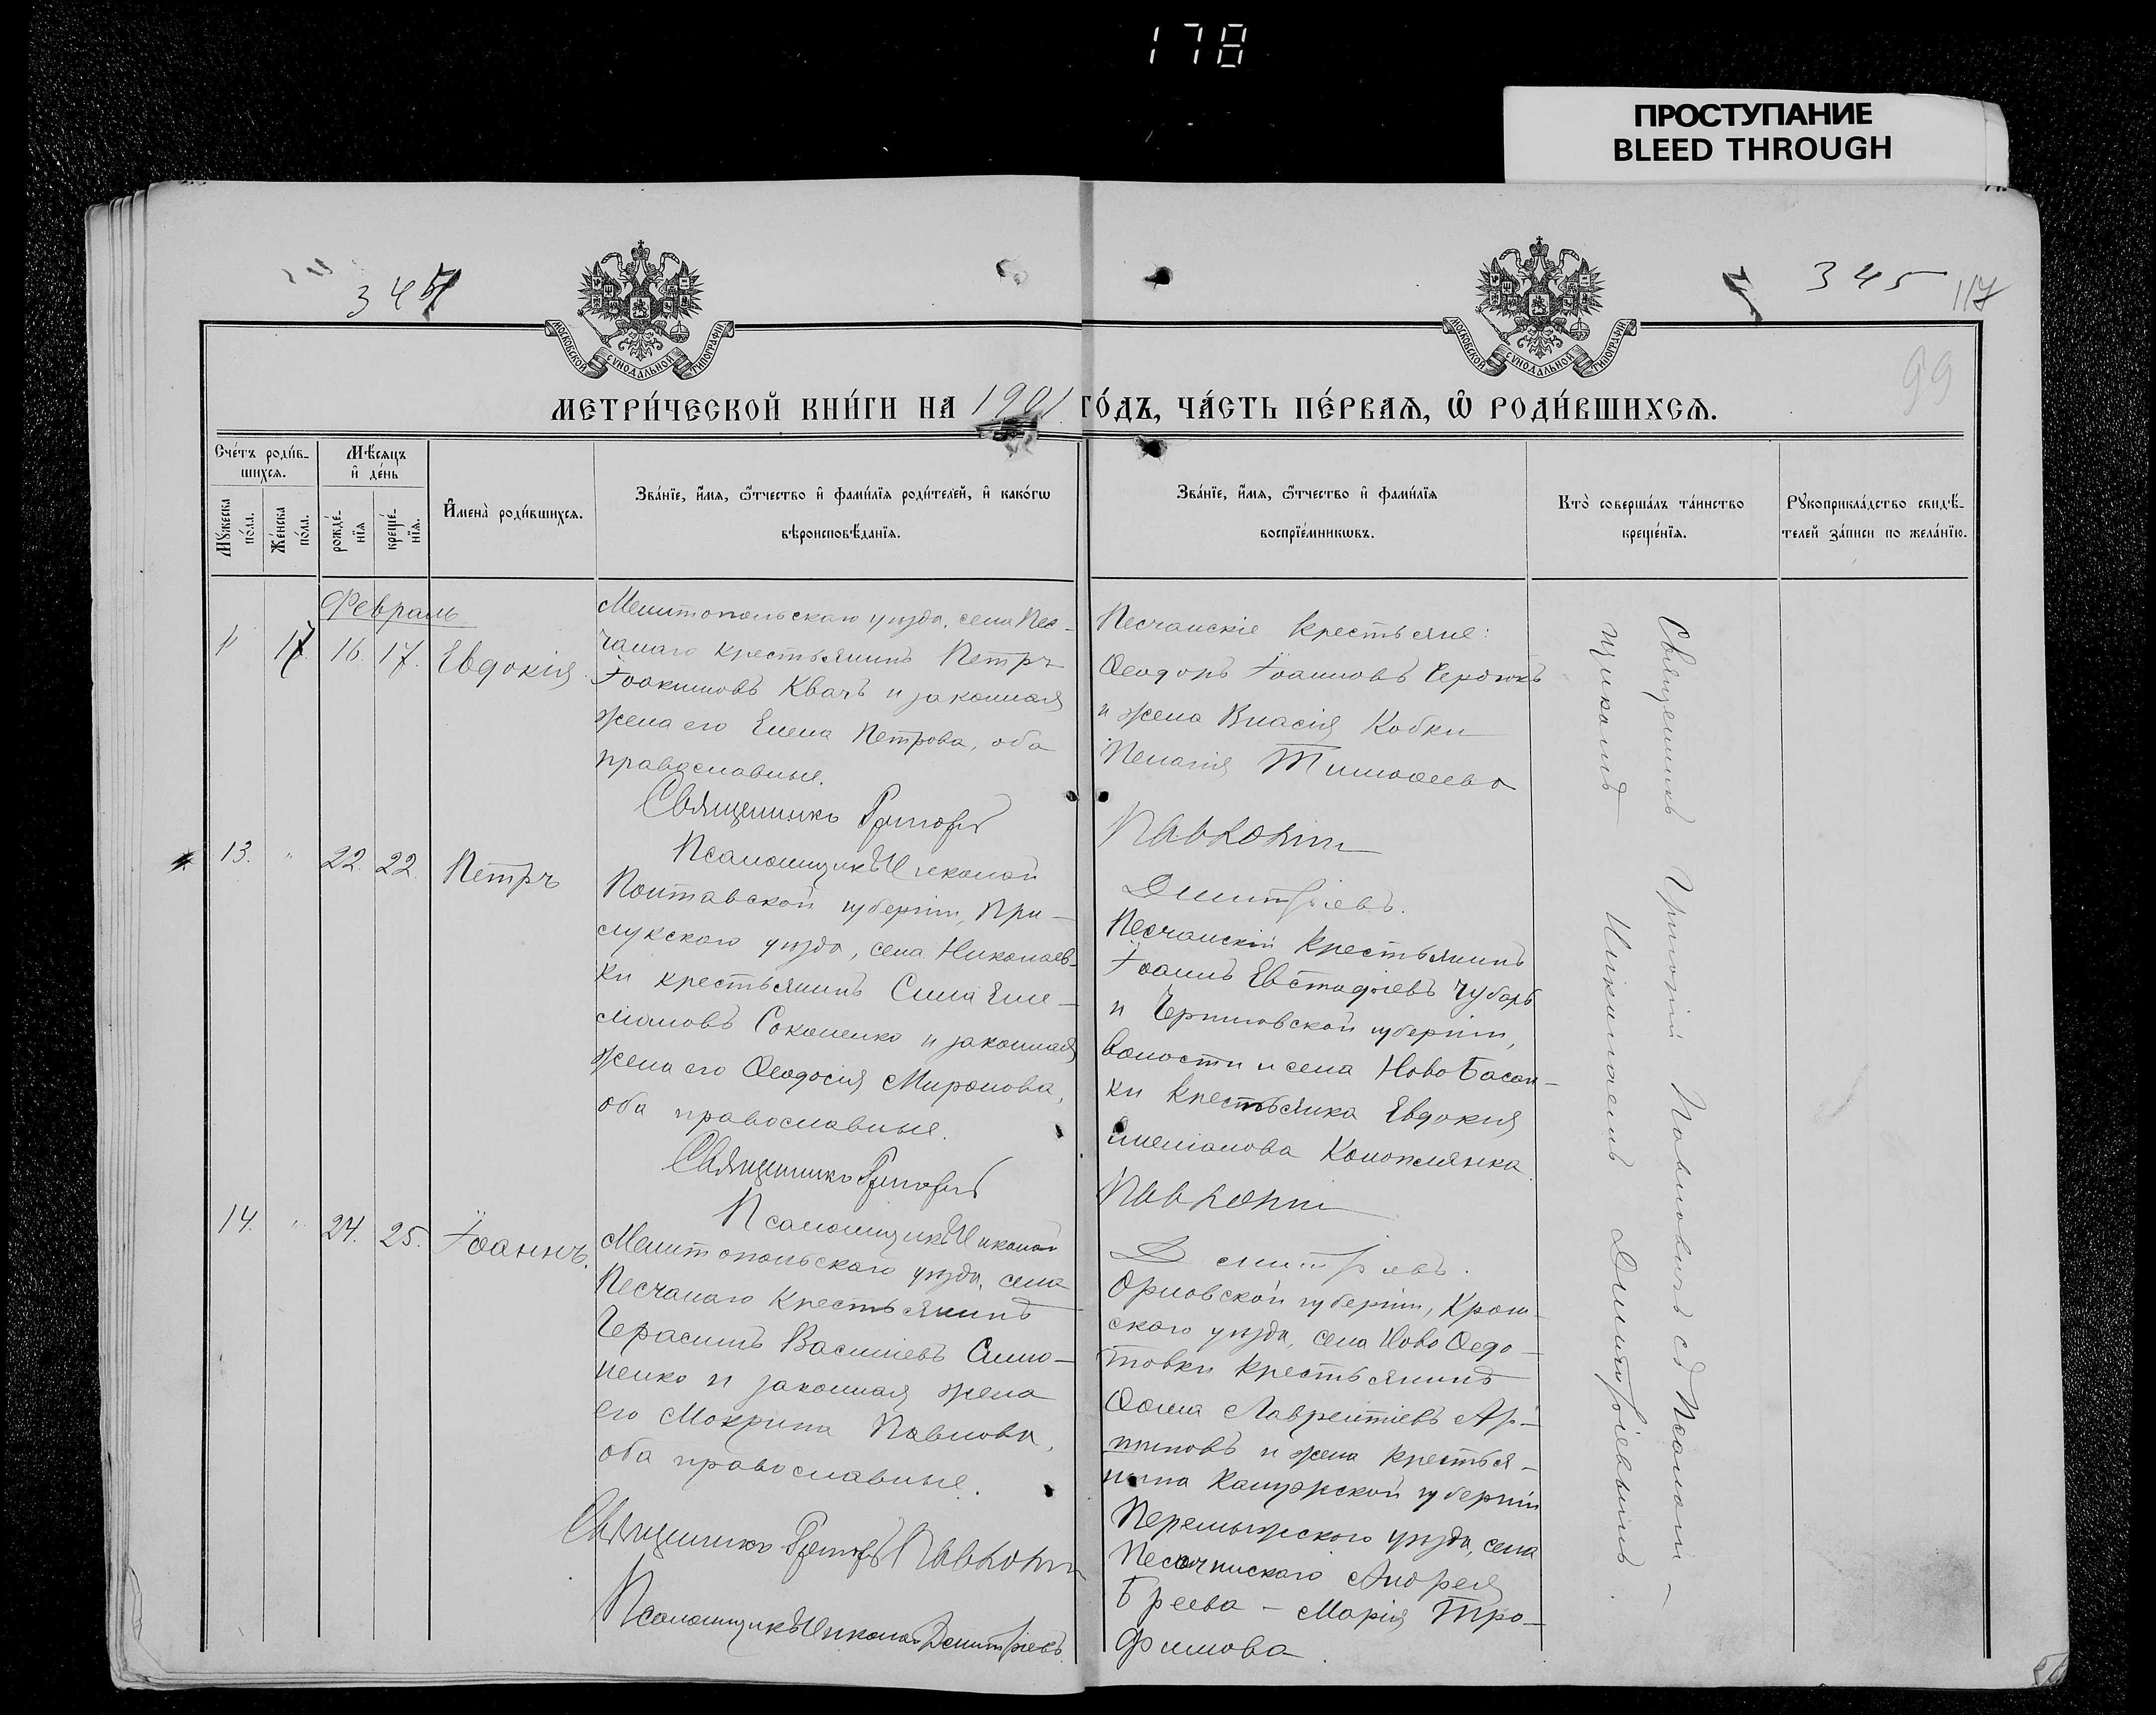 178
ПРОСТУПАНИЕ
BLEED THROUGH
345
117
99
МОСКОВСКОЙ СУНОДАЛЬНОЙ ТИПОГРАФІИ
МОСКОВСКОЙ СУНОДАЛЬНОЙ ТИПОГРАФІИ
МЕТРИ́ЧЕСКОЙ КНИ́ГИ НА 1901 ГО́ДЪ, ЧА́СТЬ ПЕ́РВАѦ, Ѡ РОДИ́ВШИХСѦ.
Сче́тъ роди́в-
шихсѧ.
Мѣ́сѧцъ
и҆ де́нь
Мꙋ́жеска
по́ла.
Же́нска
по́ла.
рожде́-
нїѧ
креще́-
нїѧ.
И҆мена̀ роди́вшихсѧ.
Зва́нїе, и҆́мѧ, ѻ҆́тчество и҆ фами́лїѧ роди́телей, и҆ како́гѡ
вѣроисповѣ́данїѧ.
Зва́нїе, и҆́мѧ, ѻ҆́тчество и҆ фами́лїѧ
воспрїе́мникѡвъ.
Кто̀ соверша́лъ та́инство
креще́нїѧ.
Рꙋкоприкла́дство свидѣ́-
телей за́писи по жела́нїю.
Февраль
17. 16. 17. Евдокія
Мелитопольскаго уѣзда, села Пес-
чанаго крестьянинъ Петръ
Іоакимовъ Квачъ и законная
жена его Елена Петрова, оба
православные.
Священникъ Григорій
Псаломщикъ Николай
Песчанскіе крестьяне:
Ѳеодоръ Іоанновъ Сердюкъ
и жена Власія Кобки
Пелагія Тимоѳеева
Павловичъ
Дмитріевъ.
13. " 22. 22. Петръ
Полтавской губерніи, При-
лукскаго уѣзда, села Николаев-
ки крестьянинъ Сила Еме-
ліановъ Соколенко и законная
жена его Ѳеодосія Миронова,
оба православные.
Священникъ Григорій
Псаломщикъ Николай
Песчанскій крестьянинъ
Іоаннъ Евстафіевъ Чубарь
и Черниговской губерніи,
волости и села Ново Басан-
ки крестьянка Евдокія
Емеліанова Коноплянка
Павловичъ
Дмитріевъ.
14. " 24. 25. Іоаннъ.
Мелитопольскаго уѣзда, села
Песчанаго крестьянинъ
Герасимъ Василіевъ Симо-
ненко и законная жена
его Мокрина Павлова,
оба православные.
Священникъ Григорій Павловичъ
Псаломщикъ Николай Дмитріевъ
Орловской губерніи, Кром-
скаго уѣзда, села Ново Ѳедо-
товки крестьянинъ
Ѳома Лаврентіевъ
и жена крестья-
нина Калужской губерніи
Перемышскаго уѣзда, села
Андрея
Бреева – Марія Тро-
фимова.
Священникъ Григорій Павловичъ съ Псалом-
щикомъ Николаемъ Дмитріевымъ.